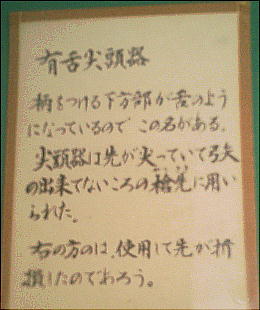 有舌尖頭器
柄をつける下方部が舌のよう
になっているので この名がある。
尖頭器は先が尖っていて弓矢
の出来てないころの槍先に用い
られた。
右の方のは、使用して先が折
損したのであろう。